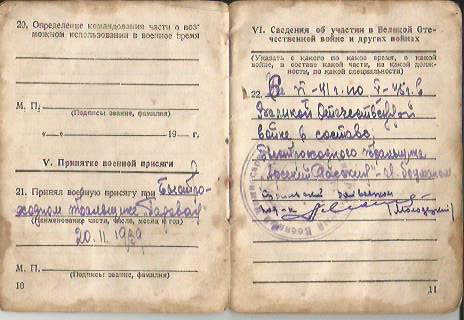 20. Определение командования части о воз-
можном использовании в военное время
М. П.
(Подписы звание, фамилия)
«—» 19 г.
V. Принятие военной присяги
21. Принял военную присягу при Быстро-
ходном тральщике
(Наименование части, число, месяц и год)
20. II 1939
М. П.
(Подписы звание, фамилия)
10
VI. Сведения об участии в Великой Оте-
чественной войне и других войнах
(Указать с какого по какое время, в какой
войне, в составе какой части, на какой долж-
ности, по какой специальности)
22. В VI-41г. по V-45г. в
Великой Отечественной
войне в составе
Быстроходного тральщика
11